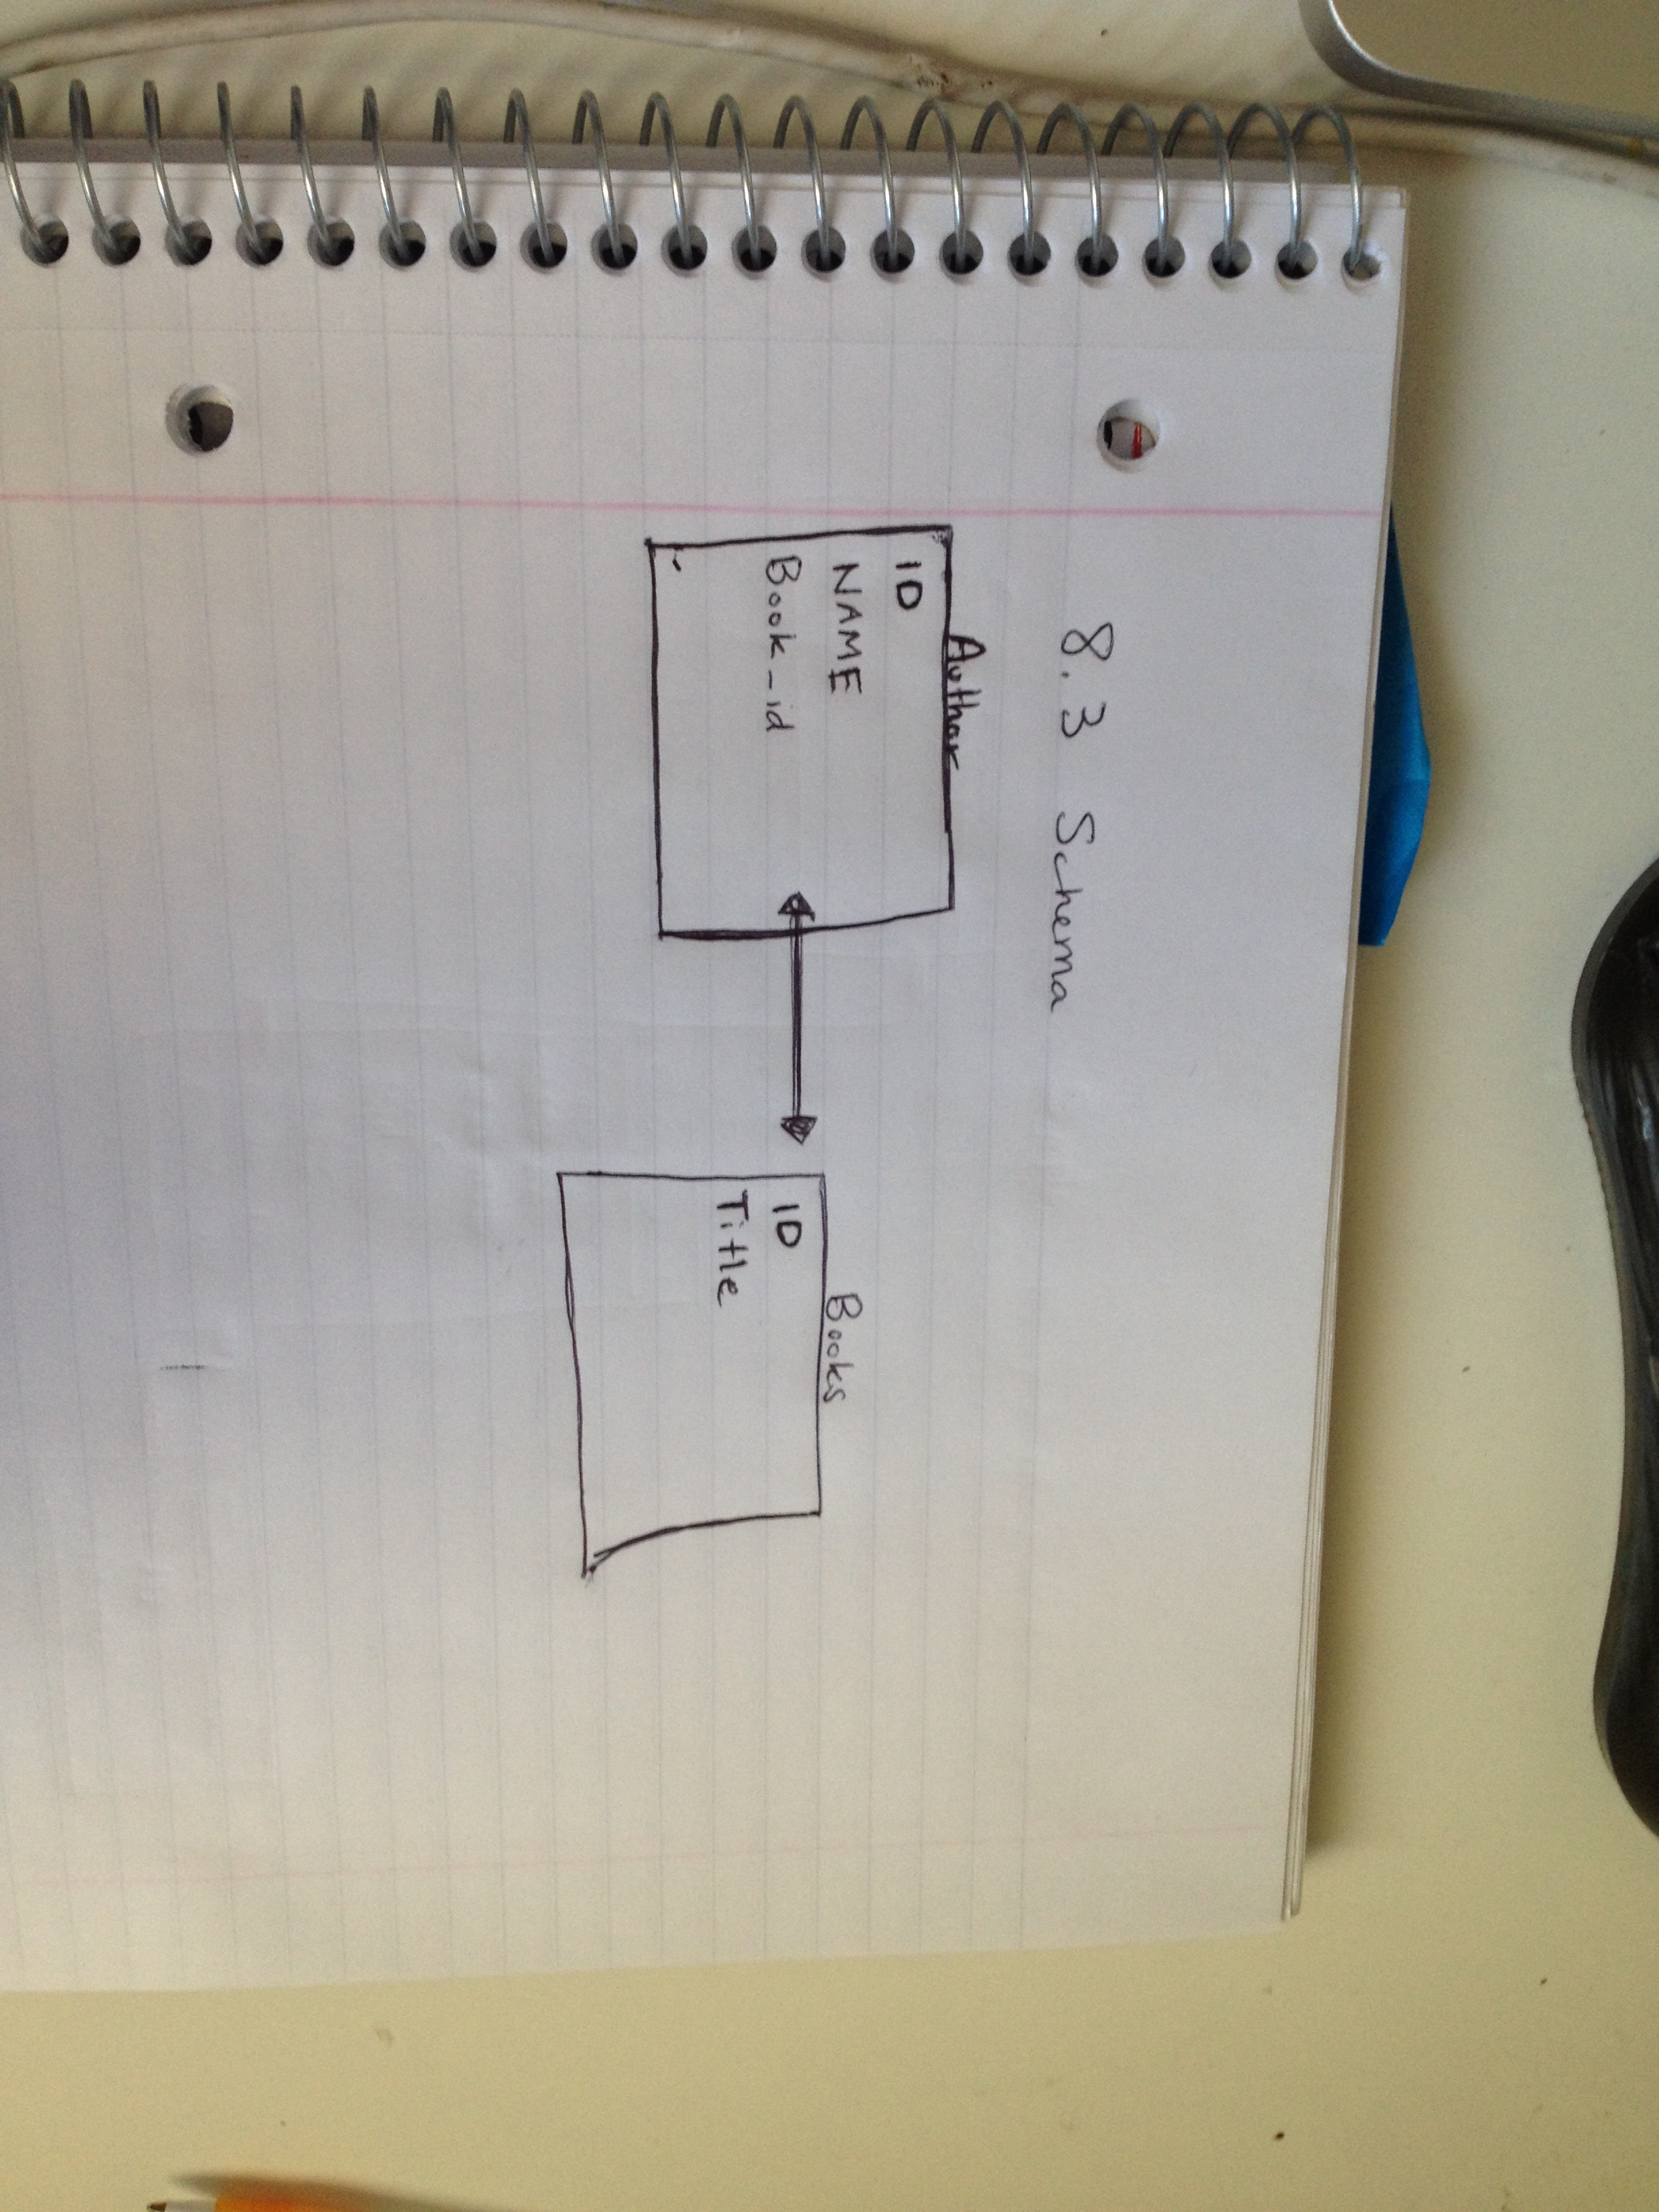 8.3 Schema
Author
ID
NAME
Book_id
Books
ID
Title